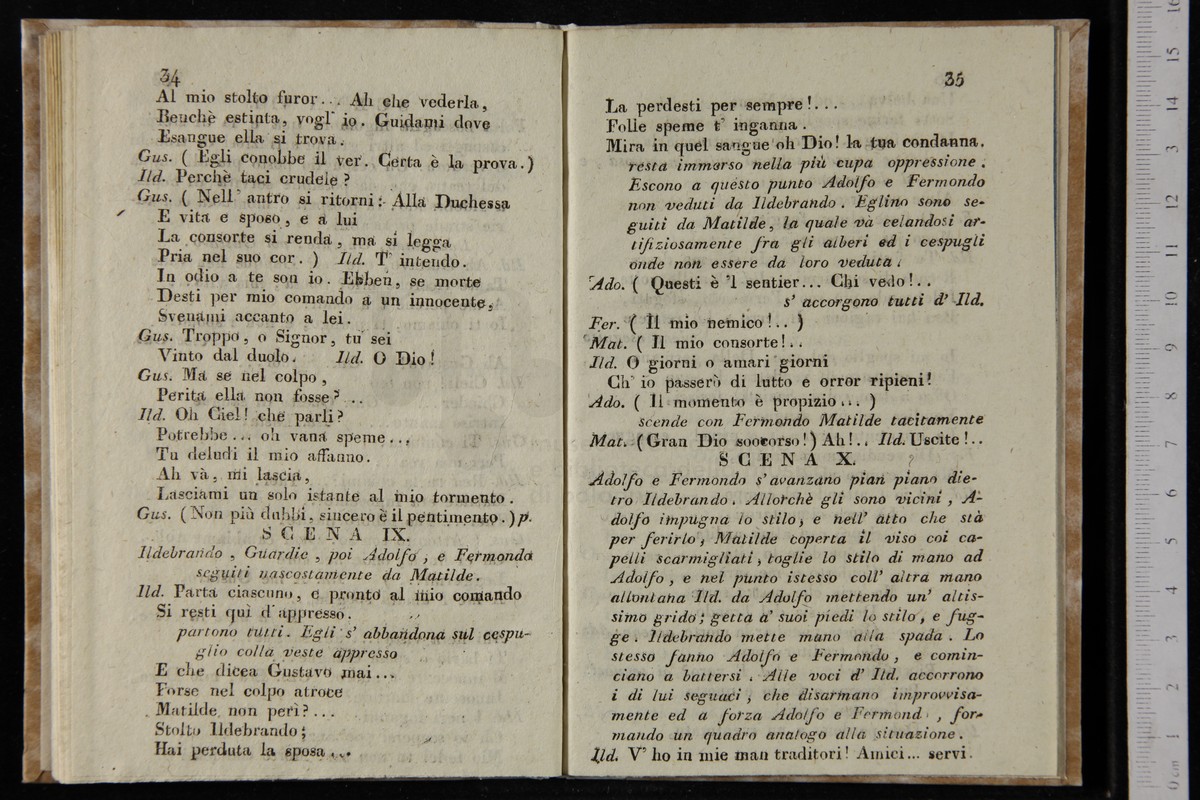 34
Al mio stolto furor... Ah che vederla,
Benchè estinta, vogl' io. Guidami dove
Esangue ella si trova.
Gus. ( Egli conobbe il ver. Certa è la prova.)
Ild. Perchè taci crudele ?
Gus. ( Nell' antro si ritorni: Alla Duchessa
E vita e sposo, e a lui
La consorte si renda, ma si legga
Pria nel suo cor. ) Ild. T' intendo.
In odio a te son io. Ebben, se morte
Desti per mio comando a un innocente,
Svenami accanto a lei.
Gus. Troppo, o Signor, tu sei
Vinto dal duolo. Ild. O Dio!
Gus. Ma se nel colpo,
Perita ella non fosse? ..
Ild. Oh Ciel! che parli?
Potrebbe... oh vana speme...
Tu deludi il mio affanno.
Ah và, mi lascia,
Lasciami un solo istante al mio tormento.
Gus. (Non più dubbi, sincero è il pentimento.) p.
SCENA IX.
Ildebrando, Guardie, poi Adolfo, e Fermondo
seguiti nascostamente da Matilde.
Ild. Parta ciascuno, e pronto al mio comando
Si resti quì d'appresso.
partono tutti. Egli s' abbandona sul cespu-
glio colla veste appresso
E che dicea Gustavo mai...
Forse nel colpo atroce
Matilde non perì?...
Stolto Ildebrando;
Hai perduta la sposa...
35
La perdesti per sempre!...
Folle speme t' inganna.
Mira in quel sangue oh Dio! la tua condanna.
resta immerso nella più cupa oppressione.
Escono a questo punto Adolfo e Fermondo
non veduti da Ildebrando. Eglino sono se-
guiti da Matilde, la quale và celandosi ar-
tifiziosamente fra gli alberi ed i cespugli
onde non essere da loro veduta.
Ado. ( Questi è 'l sentier... Chi vedo!..
s' accorgono tutti d' Ild.
Fer. ( Il mio nemico!.. )
Mat. ( Il mio consorte!..
Ild. O giorni o amari giorni
Ch' io passerò di lutto e orror ripieni!
Ado. ( Il momento è propizio... )
scende con Fermondo Matilde tacitamente
Mat. (Gran Dio soccorso!) Ah!.. Ild. Uscite!..
SCENA X.
Adolfo e Fermondo s' avanzano pian piano die-
tro Ildebrando. Allorchè gli sono vicini, A-
dolfo impugna lo stilo, e nell' atto che stà
per ferirlo, Matilde coperta il viso coi ca-
pelli scarmigliati, toglie lo stilo di mano ad
Adolfo, e nel punto istesso coll' altra mano
allontana Ild. da Adolfo mettendo un' altis-
simo grido; getta a' suoi piedi lo stilo, e fug-
ge. Ildebrando mette mano alla spada. Lo
stesso fanno Adolfo e Fermondo, e comin-
ciano a battersi. Alle voci d' Ild. accorrono
i di lui seguaci, che disarmano improvvisa-
mente ed a forza Adolfo e Fermond, for-
mando un quadro analogo alla situazione.
Ild. V' ho in mie man traditori! Amici... servi.
0 cm 1 2 3 4 5 6 7 8 9 10 11 12 13 14 15 16